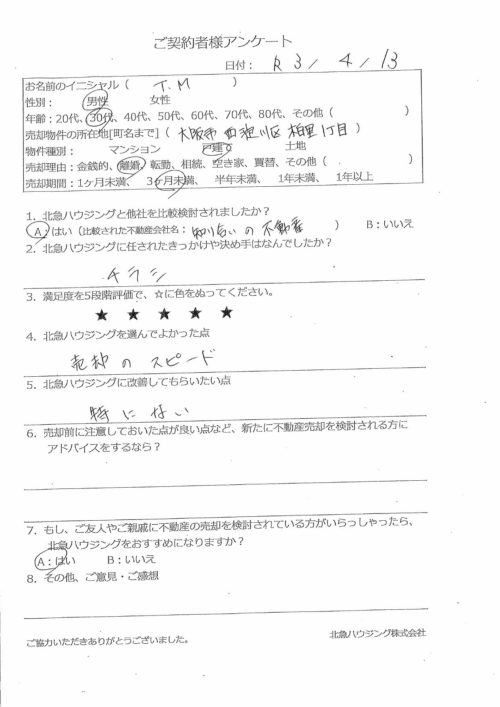 ご契約者様アンケート
日付: R3/4/13
お名前のイニシャル ( T.M )
性別: 男性 女性
年齢:20代、30代、40代、50代、60代、70代、80代、その他 ( )
売却物件の所在地[町名まで] ( 大阪市西淀川区柏里1丁目 )
物件種別: マンション 戸建て 土地
売却理由:金銭的、離婚、転勤、相続、空き家、買替、その他 ( )
売却期間:1ヶ月未満、 3ヶ月未満、 半年未満、 1年未満、 1年以上
1. 北急ハウジングと他社を比較検討されましたか?
A:はい (比較された不動産会社名: 知り合いの不動産 ) B:いいえ
2. 北急ハウジングに任されたきっかけや決め手はなんでしたか?
チラシ
3. 満足度を5段階評価で、☆に色をぬってください。
★ ★ ★ ★ ★
4. 北急ハウジングを選んでよかった点
売却のスピード
5. 北急ハウジングに改善してもらいたい点
特にない
6. 売却前に注意しておいた点が良い点など、新たに不動産売却を検討される方に
アドバイスをするなら?
7. もし、ご友人やご親戚に不動産の売却を検討されている方がいらっしゃったら、
北急ハウジングをおすすめになりますか?
A:はい B:いいえ
8. その他、ご意見・ご感想
ご協力いただきありがとうございました。
北急ハウジング株式会社